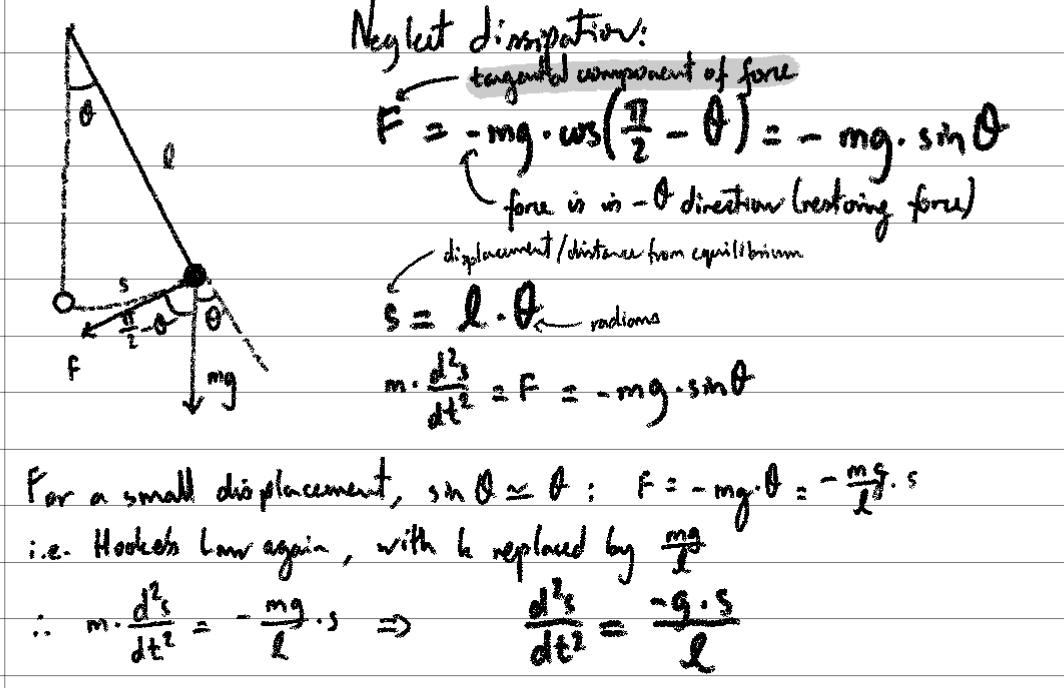 Neglect dissipation:
tangential component of force
F = -mg·cos(π/2 - θ) = - mg·sinθ
force is in -θ direction (restoring force)
displacement/distance from equilibrium
s = l·θ
radians
m·d²s/dt² = F = -mg·sinθ
θ
l
s
π/2-θ
θ
F
mg
For a small displacement, sinθ ≃ θ : F = -mg·θ = -mg/l·s
i.e. Hooke's Law again, with k replaced by mg/l
∴ m·d²s/dt² = -mg/l·s ⇒ d²s/dt² = -g·s/l